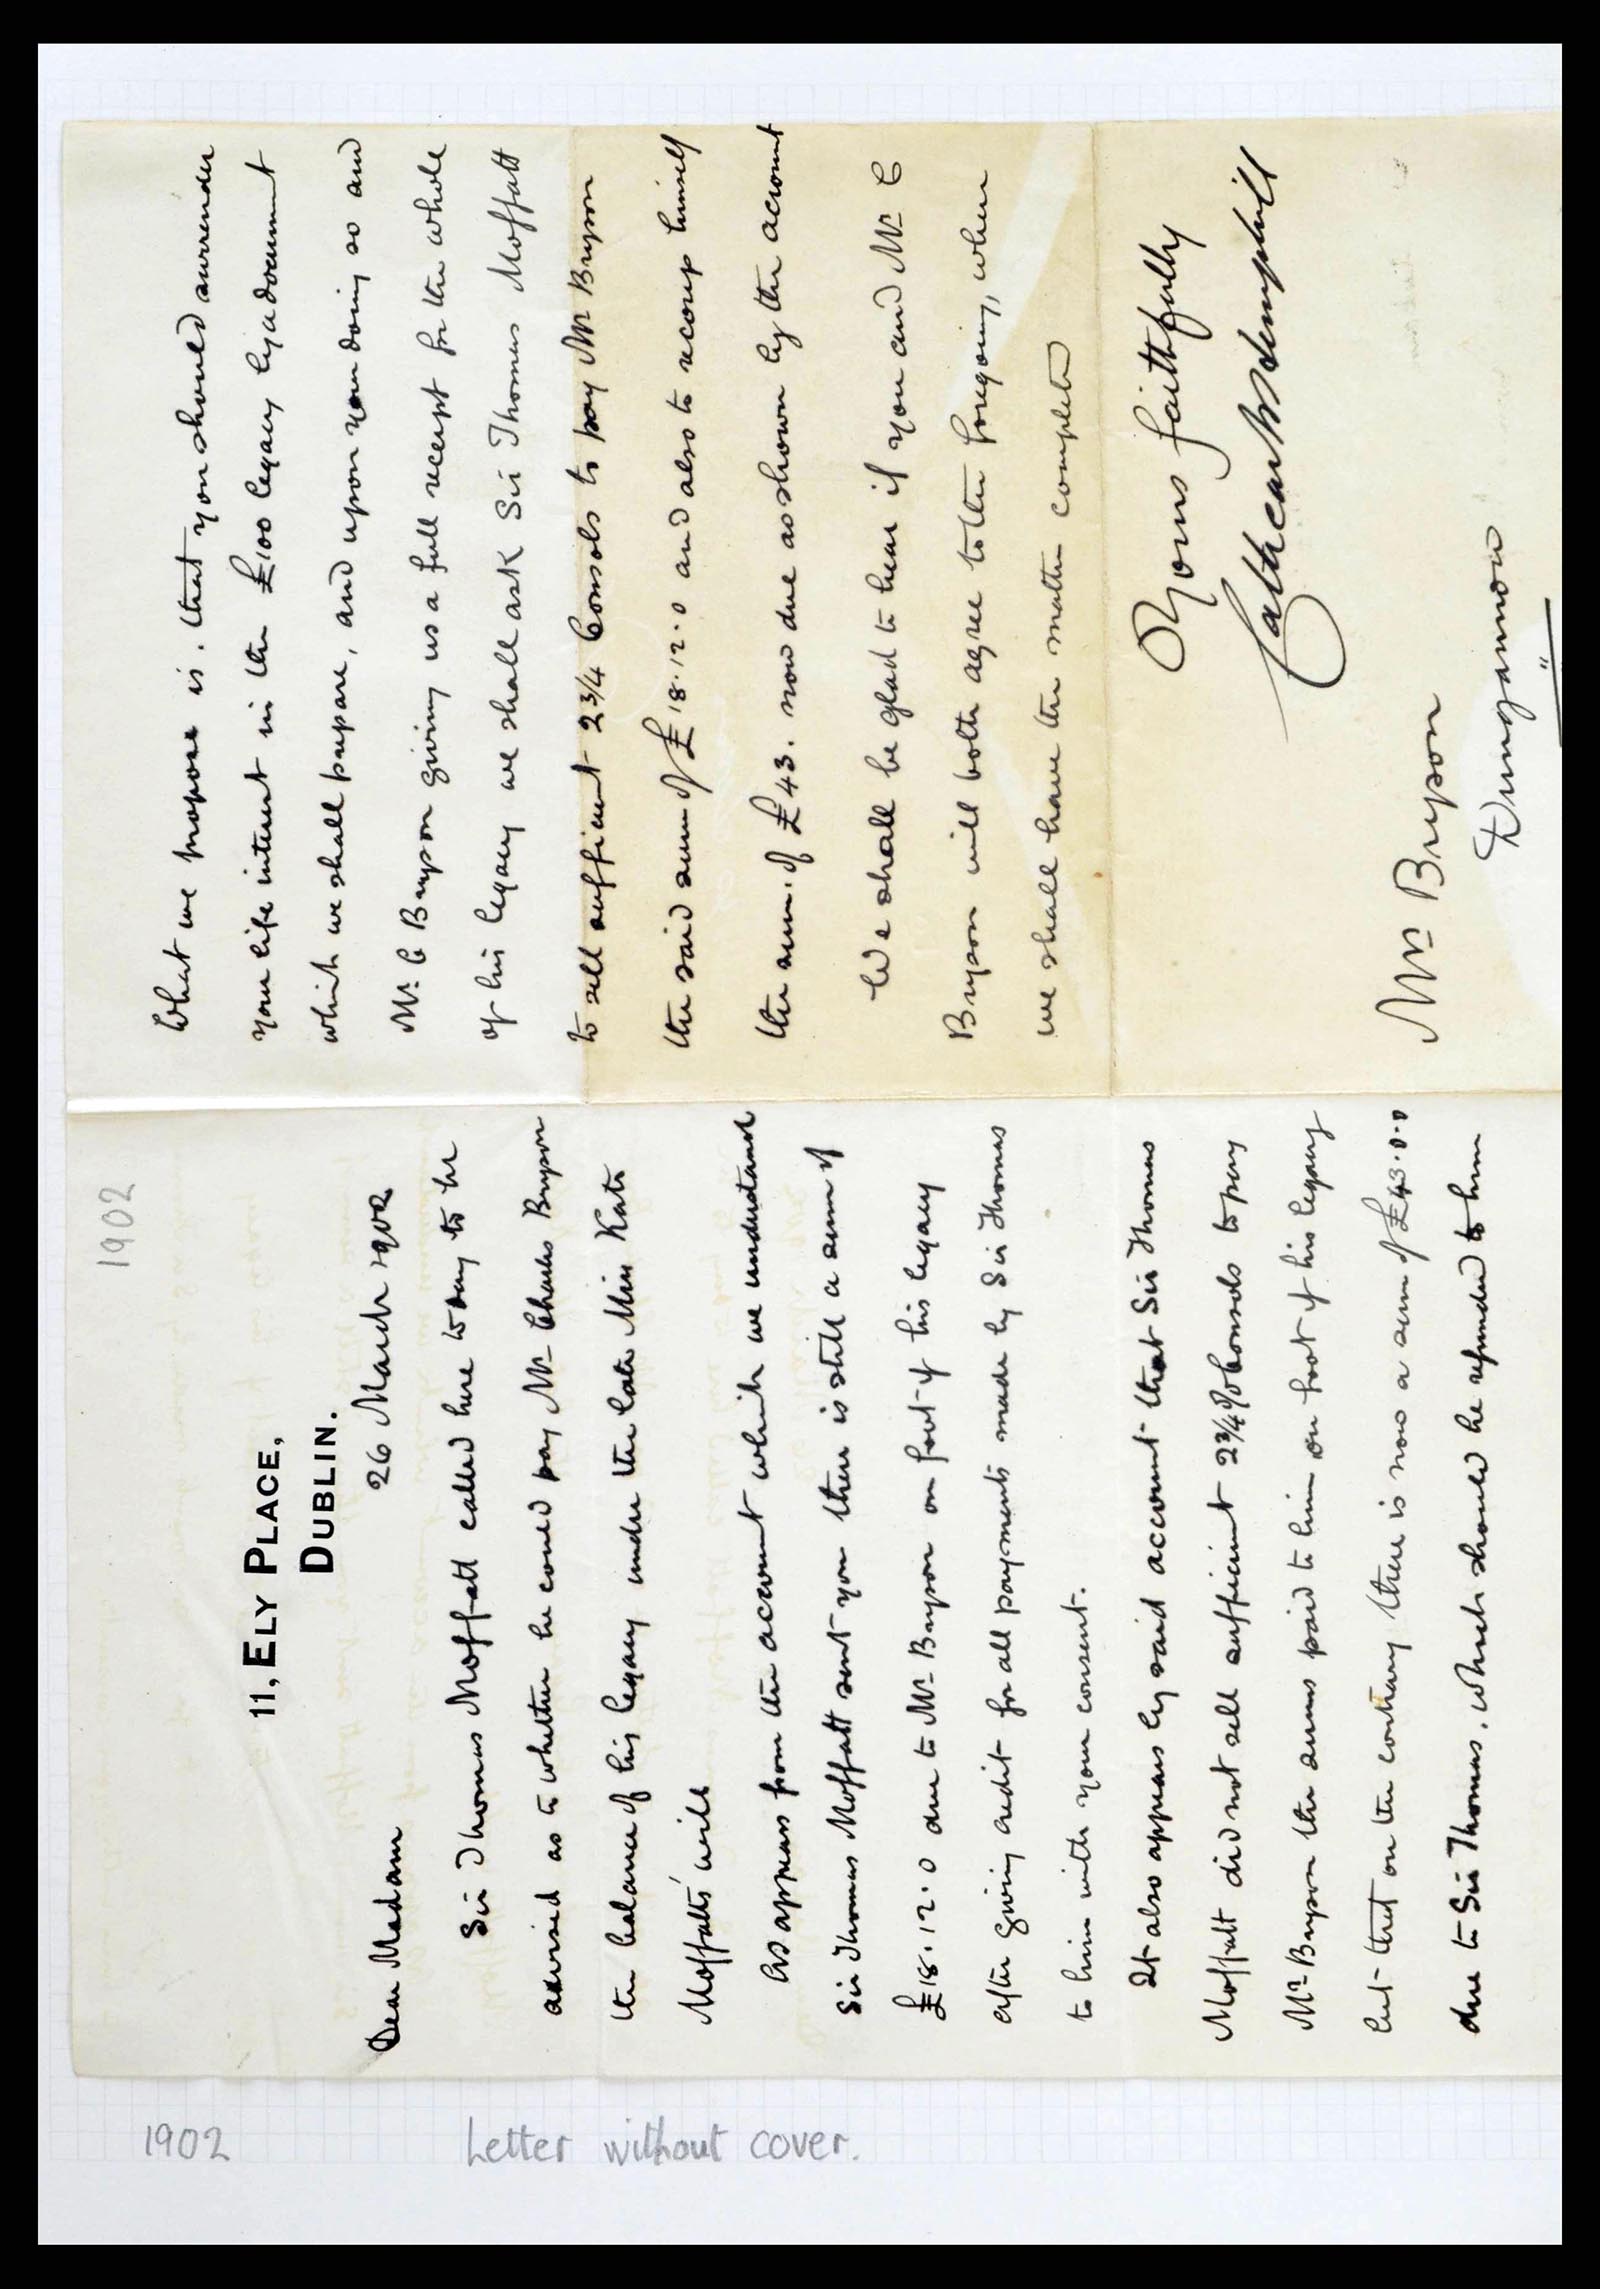 1902
11, ELY PLACE,
DUBLIN.
26 March 1902
Dear Madam
Sir Thomas Moffatt called here today to be
advised as to whether he could pay Mr Charles Bryson
the balance of his legacy under the late Miss Kate
Moffatts' will
As appears from the account which we understand
Sir Thomas Moffatt sent you there is still a sum of
£18.12.0 due to Mr Bryson on foot of his legacy
after giving credit for all payments made by Sir Thomas
to him with your consent.
It also appears by said account that Sir Thomas
Moffatt did not sell sufficient 2¾% Consols to pay
Mr Bryson the sums paid to him on foot of his legacy
but that on the contrary there is now a sum of £43.0.0
due to Sir Thomas, which should be refunded to him
What we propose is. that you should surrender
your life interest in the £100 legacy by a document
which we shall prepare, and upon your doing so and
Mr C Bryson giving us a full receipt for the whole
of his legacy we shall ask Sir Thomas Moffatt
to sell sufficient 2¾ Consols to pay Mr Bryson
the said sum of £18.12.0 and also to recoup himself
the sum of £43. now due as shown by the account
We shall be glad to hear if you and Mr C
Bryson will both agree to the foregoing, when
we shall have the matter completed
Yours faithfully
Mrs Bryson
Dungannon
1902
Letter without cover.